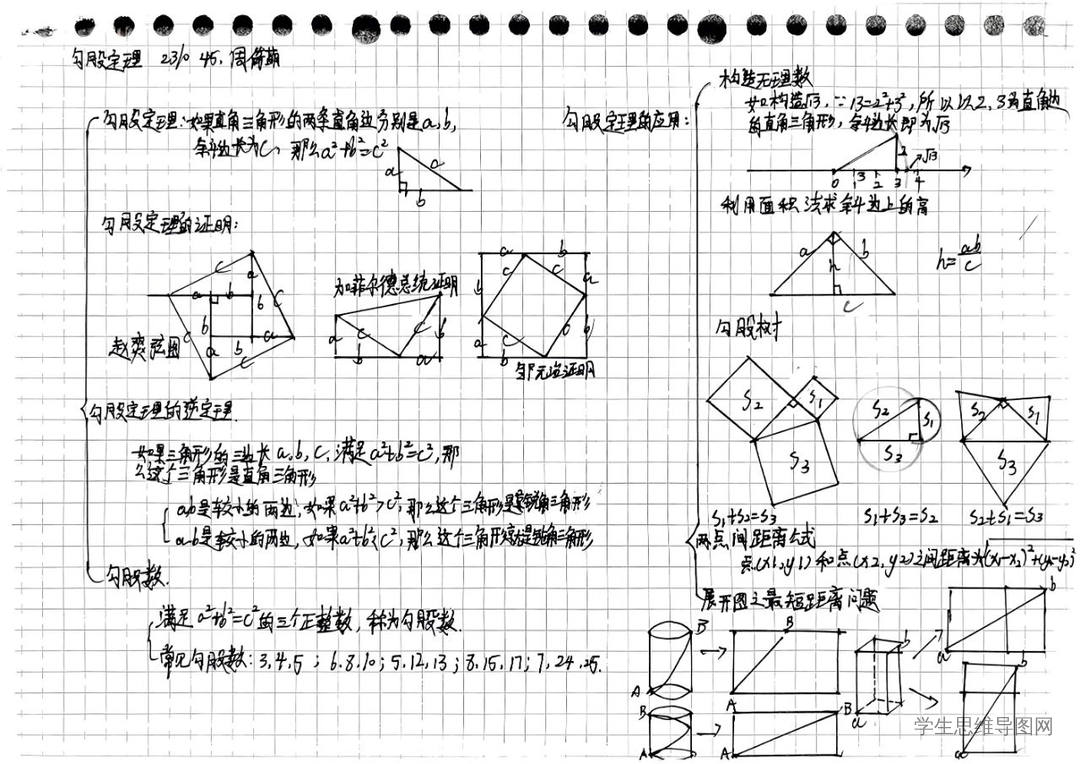 勾股定理 2310 45.
勾股定理:如果直角三角形的两条直角边分别是a,b,
斜边长为c, 那么a²+b²=c²
a
c
b
勾股定理的证明:
c
a
a
b
b
c
b
a
b
a
c
c
赵爽弦图
加菲尔德总统证明
a
c
c
b
b
a
a
b
c
c
a
b
a
c
b
b
邹元治证明
勾股定理的逆定理
如果三角形的三边长a,b,c,满足a²+b²=c²,那
么这个三角形是直角三角形
a,b是较小的两边,如果a²+b²>c²,那么这个三角形是锐角三角形
a,b是较小的两边,如果a²+b²<c²,那么这个三角形就是钝角三角形
勾股数.
满足a²+b²=c²的三个正整数,称为勾股数.
常见勾股数:3,4,5;6,8,10;5,12,13;8,15,17;7,24,25.
勾股定理的应用:
构造无理数
如构造√13,∵13=2²+3²,所以以2,3为直角边
的直角三角形,斜边长即为√13
2
√13
0
2
3
4
利用面积法求斜边上的高
a
b
h
c
h=ab/c
勾股树
S2
S1
S3
S2
S1
S3
S2
S1
S3
S1+S2=S3
S1+S3=S2
S2+S1=S3
两点间距离公式
点(x1,y1)和点(x2,y2)之间距离为√(x₁-x₂)²+(y₁-y₂)²
展开图之最短距离问题
B
A
B
A
b
a
b
a
B
A
B
A
b
a
学生思维导图网